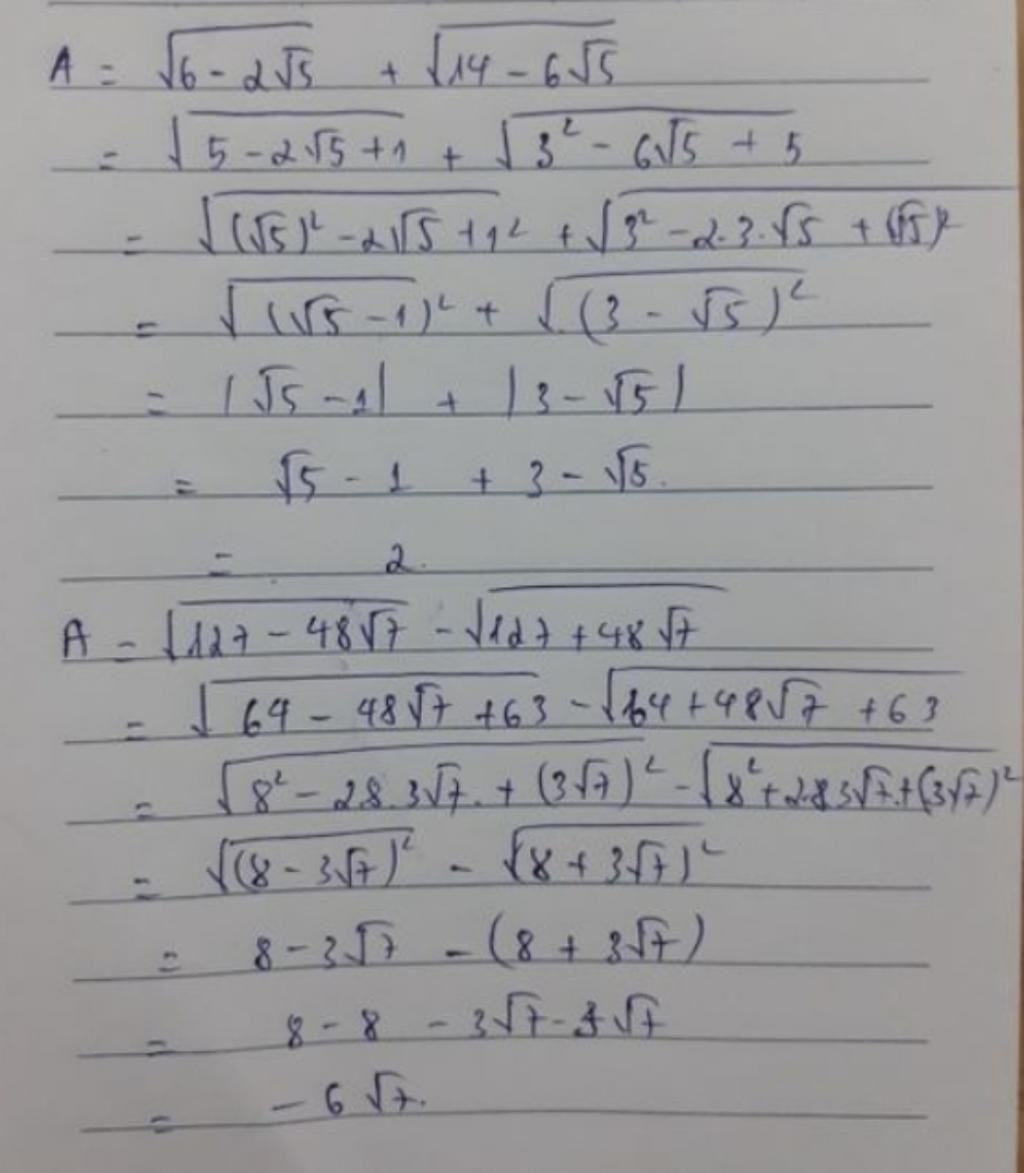 A = √(6 - 2√5) + √(14 - 6√5)
= √(5 - 2√5 + 1) + √(3² - 6√5 + 5)
= √((√5)² - 2√5 + 1²) + √(3² - 2.3.√5 + (√5)²)
= √((√5 - 1)²) + √((3 - √5)²)
= |√5 - 1| + |3 - √5|
= √5 - 1 + 3 - √5.
= 2.
A = √(127 - 48√7) - √(127 + 48√7)
= √(64 - 48√7 + 63) - √(64 + 48√7 + 63)
= √(8² - 28.3√7. + (3√7)²) - √(8² + 2.8 3√7. + (3√7)²)
= √((8 - 3√7)²) - √((8 + 3√7)²)
= 8 - 3√7 - (8 + 3√7)
= 8 - 8 - 3√7 - 3√7
= - 6√7.